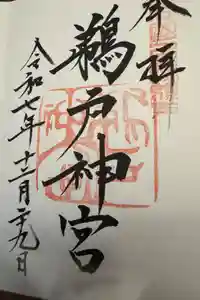 奉拝
鵜戸神宮
令和七年十二月二十九日